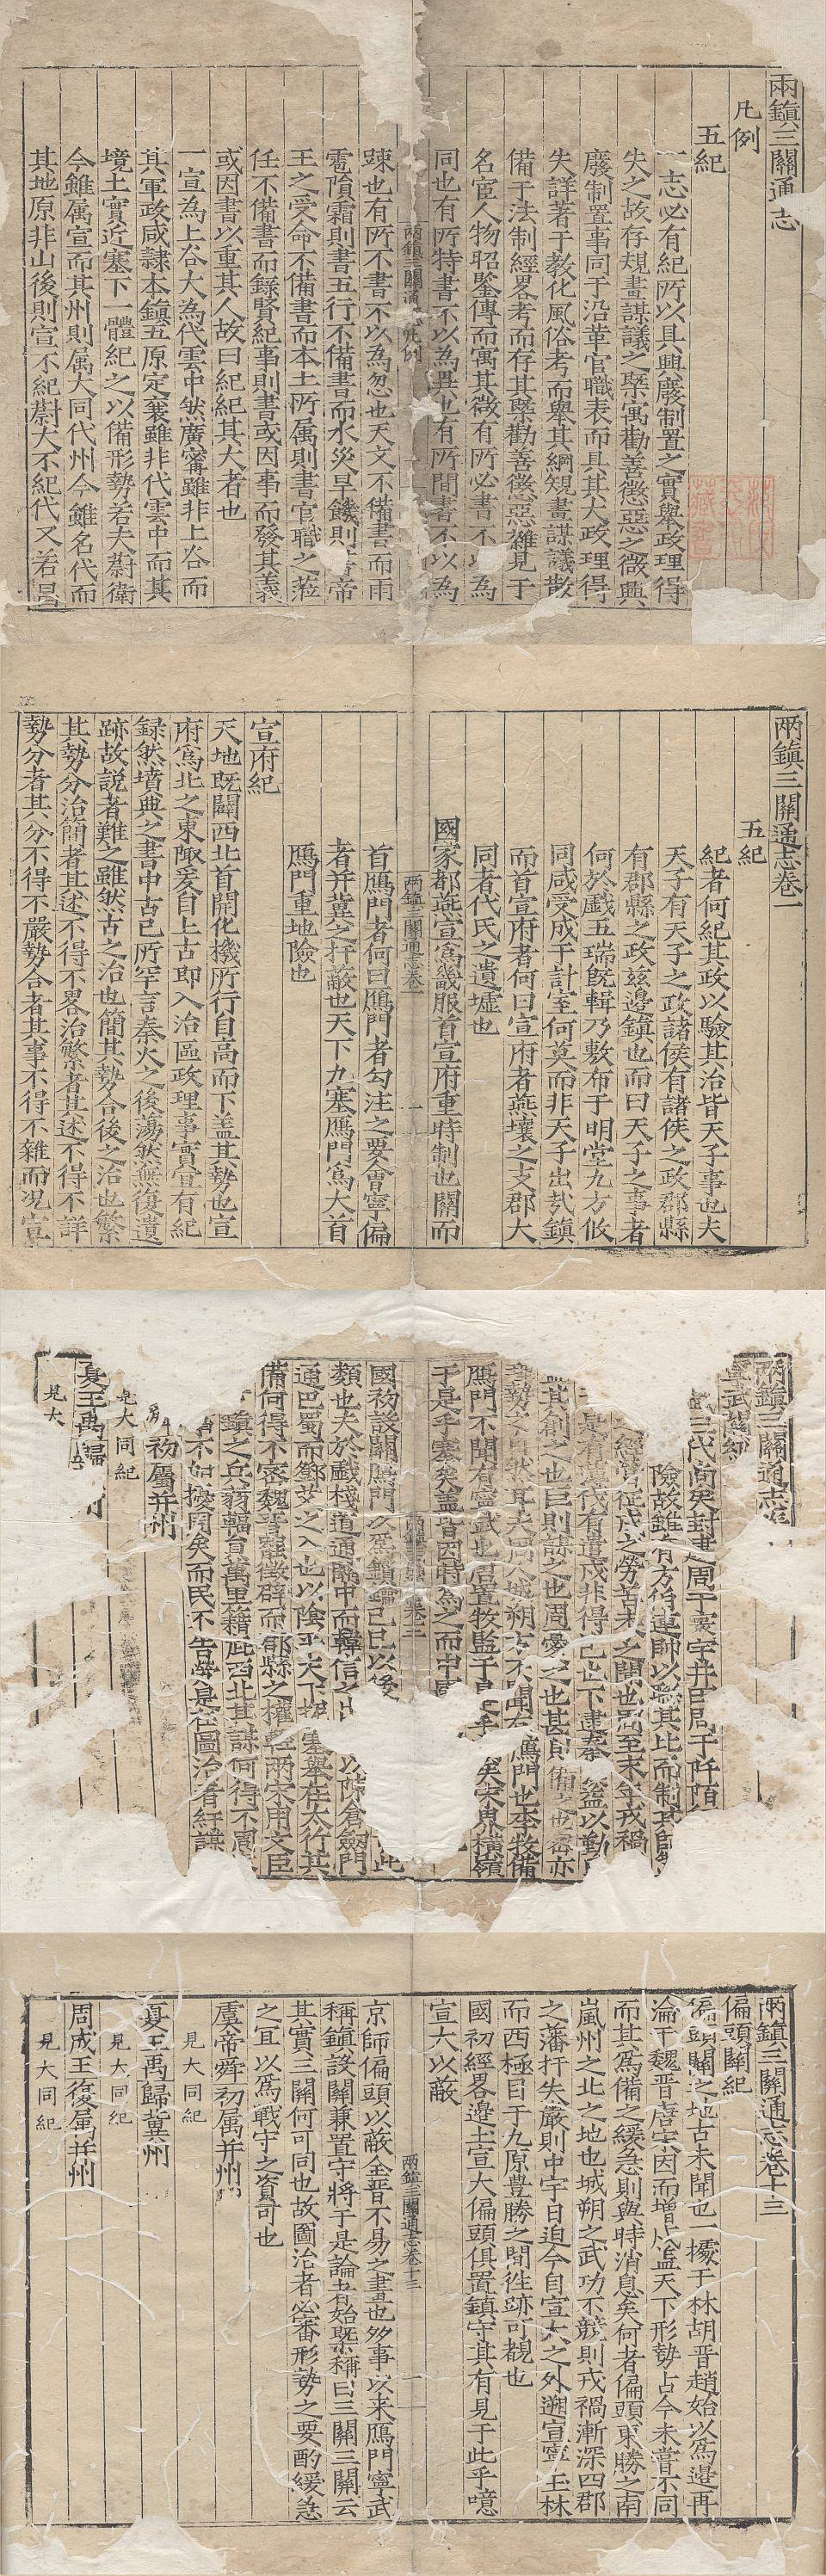 兩鎮三關通志
凡例
五紀
一志必有紀所以具興廢制置之實舉政理得
失之故存規畫謀議之槩寓勸善懲惡之微興
廢制置事同于沿革官職表而具其大政理得
失詳著于教化風俗考而舉其綱規畫謀議散
備于法制經畧考而存其槩勸善懲惡雜見于
名宦人物昭鑒傳而寓其微有所必書不以為
同也有所特書不以為異也有所間書不以為
踈也有所不書不以為忽也天文不備書而雨
雹隕霜則書五行不備書而水災旱饑則書帝
王之受命不備書而本土所属則書官職之蒞
任不備書而錄賢紀事則書或因事而發其義
或因書以重其人故曰紀紀其大者也
一宣為上谷大為代雲中然廣寗雖非上谷而
其軍政咸隷本鎮五原定襄雖非代雲中而其
境土實近塞下一體紀之以備形勢若夫蔚衛
今雖属宣而其州則属大同代州今雖名代而
其地原非山後則宣不紀蔚大不紀代又若昌
兩鎮三關通志凡例
兩鎮三關通志卷一
五紀
紀者何紀其政以驗其治皆天子事也夫
天子有天子之政諸侯有諸侯之政郡縣
有郡縣之政兹邊鎮也而曰天子之事者
何於戲五瑞旣輯乃敷布于明堂九方攸
同咸受成于計室何莫而非天子出㢤鎮
而首宣府者何曰宣府者燕壤之支郡大
同者代氏之遺墟也
國家都燕宣爲畿服首宣府重時制也關而
首鴈門者何曰鴈門者勾注之要會寧偏
者并冀之扞蔽也天下九塞鴈門爲大首
鴈門重地險也
宣府紀
天地既闢西北首開化機所行自高而下盖其勢也宣
府爲北之東陬爰自上古即入治區政理事實宜有紀
録然墳典之書中古已所罕言秦火之後蕩然無復遺
跡故說者難之雖然古之治也簡其勢合後之治也繁
其勢分治簡者其述不得不畧治繁者其述不得不詳
勢分者其分不得不嚴勢合者其事不得不雜而况宣
兩鎮三關通志卷一
一
兩鎮三關通志
寧武關紀
三代尚矣封建周于寰宇井邑周于阡陌
險故雖有方伯連帥以聫其比而制其師
經營征戍之勞苦未之聞也周至末年戎禍
是有遣戍非得已也下逮秦 益以勤
其創之也巨則謀之也周愛之也甚則備之也密亦
勢之自然耳夫周人城朔方不聞有鴈門也李牧備
鴈門不聞有寧武也唐置牧監于
于是乎塞矣盖皆因時為之而
國初設關鴈門以爲鎖鑰己巳以後
類也夫於戲棧道通隴中而韓信之出以陳倉劒門
通巴蜀而鄧艾之入也以陰平天下 塞盤在太行其
備何得不密魏晋離徵辟而郡縣之權輕兩宋用文臣
鎮之兵弱輻員萬里藉此西北其謀何得不周
不如擾周矣而民不告弊是在圖治者紆謀
初屬并州
見大同紀
夏王禹歸 州
見大
兩鎮三關通志卷十三
偏頭關紀
偏頭關之地古未聞也一擾于林胡晋趙始以爲邊再
淪于魏晋唐宋因而增戍盖天下形勢占今未嘗不同
而其爲備之緩急則與時消息矣何者偏頭東勝之南
嵐州之北之地也城朔之武功不競則戎禍漸深四郡
之藩扞失嚴則中宇日迫今自宣大之外遡宣寧玉林
而西極目于九原豊勝之間徃跡可覩也
國初經畧邊土宣大偏頭俱置鎮守其有見于此乎噫
宣大以蔽
京師偏頭以蔽全晋不易之畫也多事以来鴈門寧武
稱鎮設關兼置守將于是論者始槩稱曰三關三關云
其實三關何可同也故圖治者必審形勢之要酌緩急
之冝以爲戰守之資可也
虞帝舜初属并州
見大同紀
夏王禹歸冀州
見大同紀
周成王復属并州
見大同紀
兩鎮三關通志卷十三
一